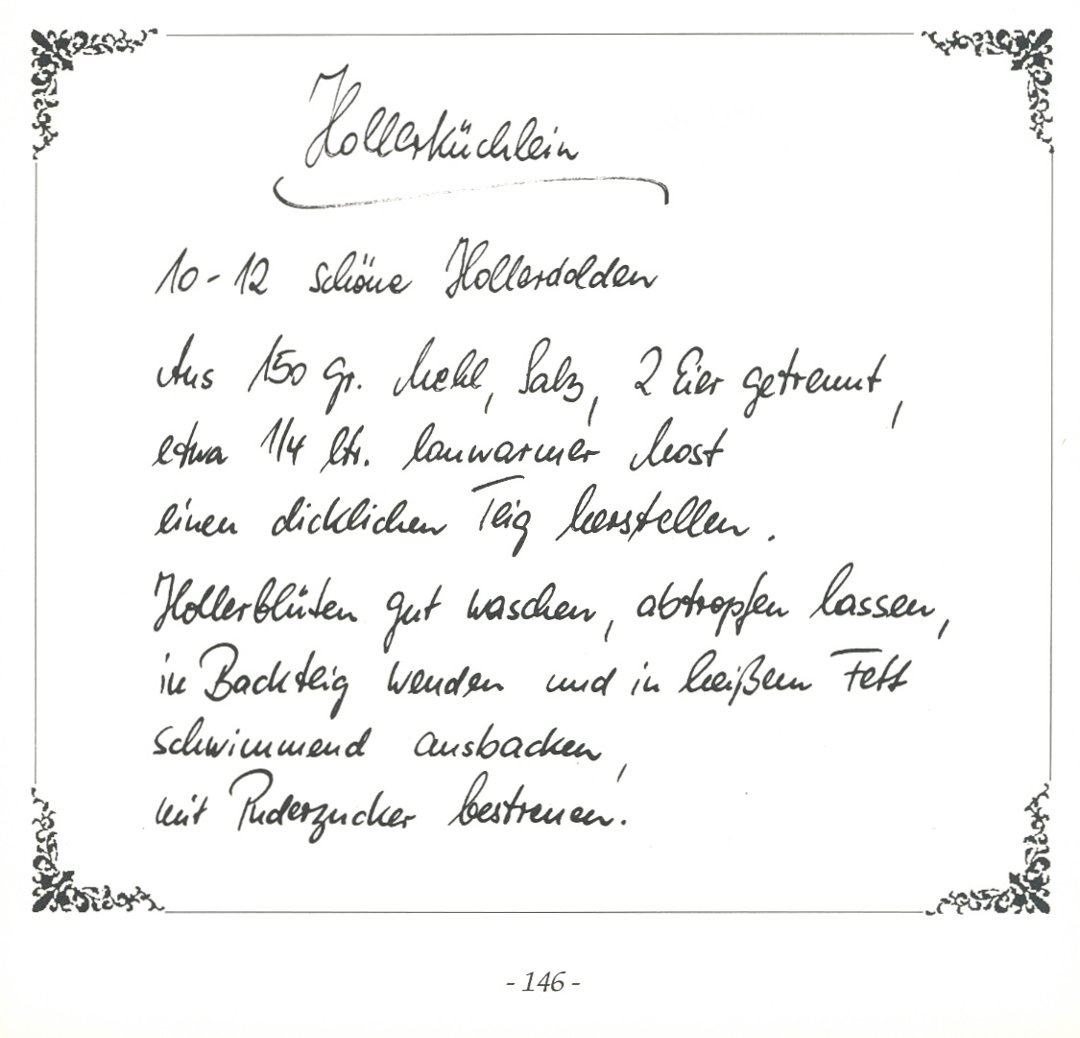 Hollerküchlein
10-12 schöne Hollerdolden
Aus 150 gr. Mehl, Salz, 2 Eier getrennt,
etwa 1/4 ltr. lauwarmer Most
einen dicklichen Teig herstellen.
Hollerblüten gut waschen, abtropfen lassen,
in Backteig wenden und in heißem Fett
schwimmend ausbacken,
mit Puderzucker bestreuen.
- 146 -